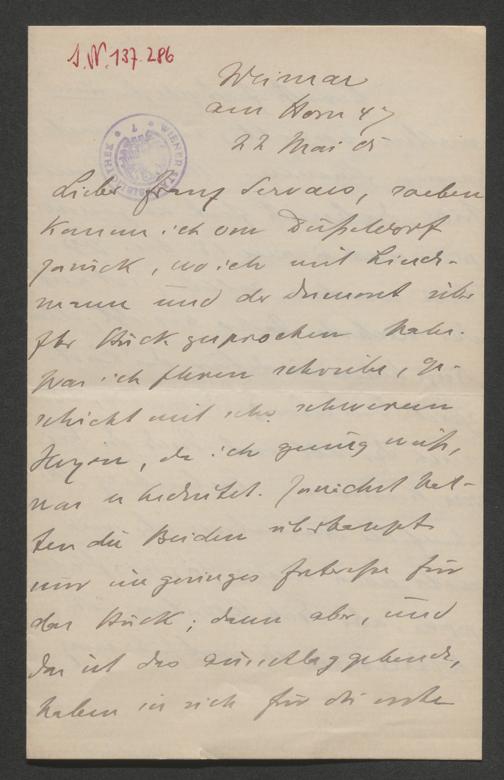 J.N. 137.286
WIENER STADTBIBLIOTHEK
Weimar
am Horn 47
22 Mai 05
Lieber Franz Servaes, soeben
komme ich von Düsseldorf
zurück, wo ich mit Linde-
mann und der Dumont über
Ihr Stück gesprochen habe.
Was ich Ihnen schreibe, ge-
schieht mit sehr schwerem
Herzen, da ich genug weiß,
was es bedeutet. Zunächst hat-
ten die Beiden überhaupt
nur ein geringes Interesse für
das Stück; dann aber, und
das ist das ausschlaggebende,
haben sie sich für die erste